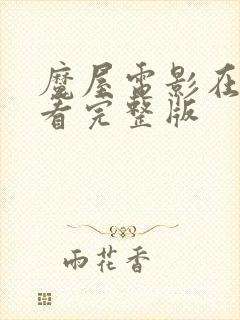 魔屋雷影在
看完整版
雨花香